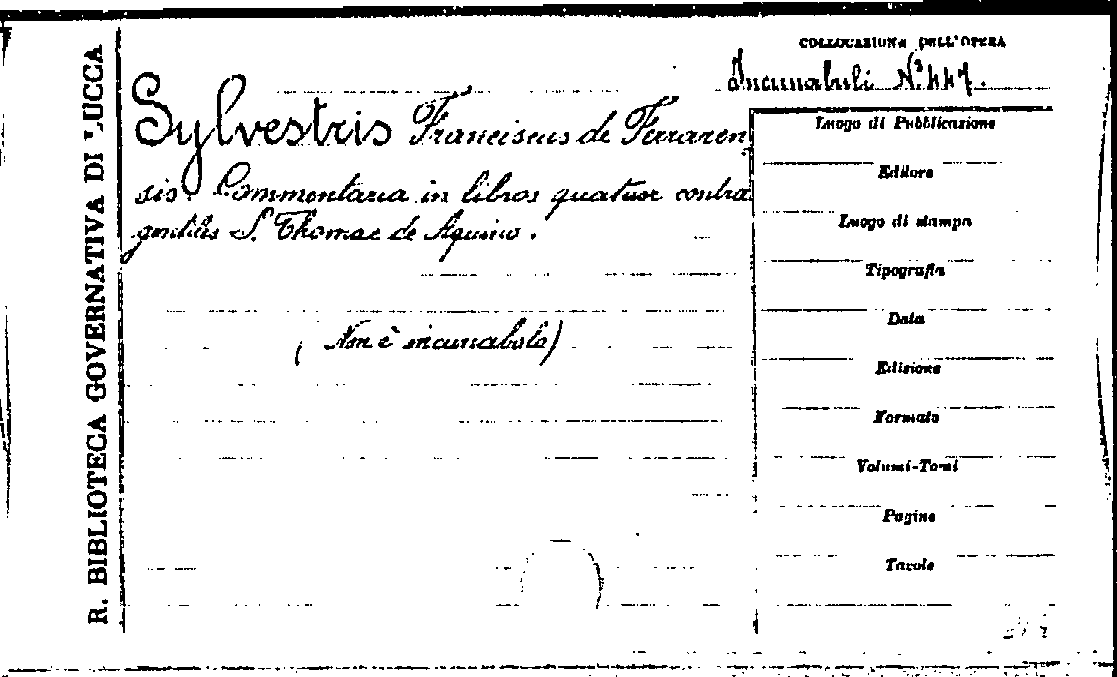 R. BIBLIOTECA GOVERNATIVA DI LUCCA
COLLOCAZIONE DELL'OPERA
Incunabuli N.º 447.
Sylvestris Franciscus de Ferraren
sis. Commentaria in libros quatuor contra
gentiles S. Thomae de Aquino.
(Non è incunabolo)
Luogo di Pubblicazione
Editore
Luogo di stampa
Tipografia
Data
Edizione
Formato
Volumi-Tomi
Pagine
Tavole